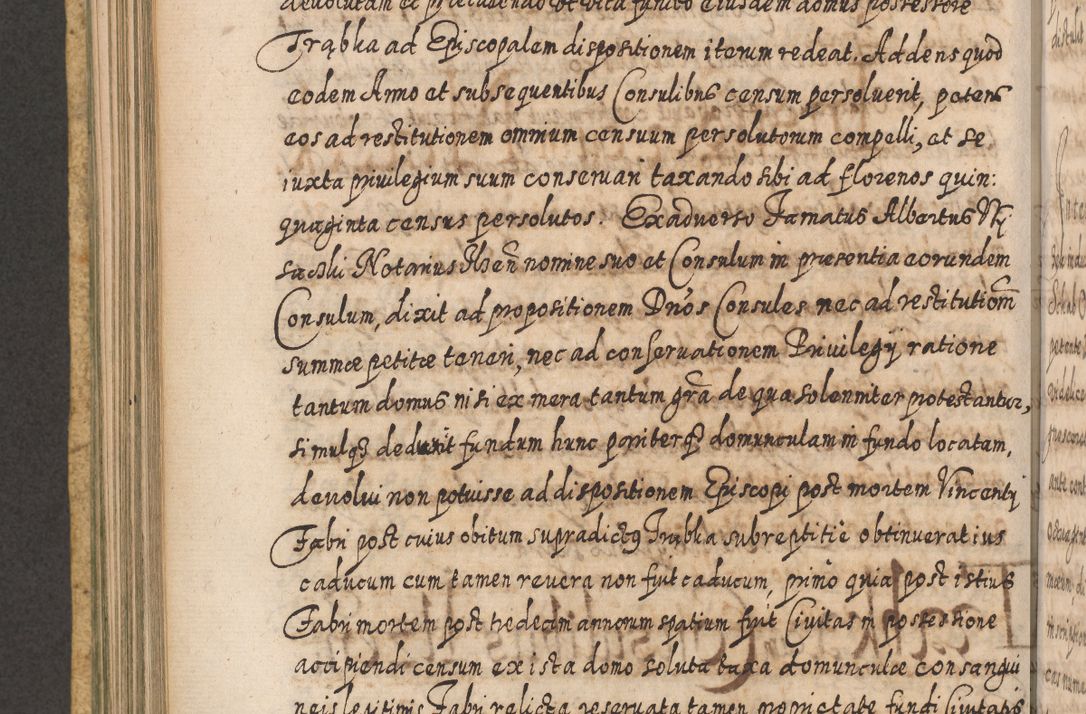 devolutam et precludendo et vita functo eiusdem domus possessore
Trąbka ad Episcopalem dispositionem iterum redeat. Addens quod
eodem Anno et subsequentibus Consulibus censum persoluerit, petens
eos ad restitutionem omnium censuum persolutorum compelli, et se
iuxta priuilegium suum conseruari taxando sibi ad florenos quin:
quaginta census persolutos. Ex aduerso Famatus Albertus
Notarius nomine suo et Consulum in præsentia eorundem
Consulum, dixit ad propositionem Dnos Consules nec ad restitutiom
summæ petitæ teneri, nec ad conseruationem Priuilegij ratione
tantum domus nisi ex mera tantum gra de qua solenniter protestantur,
simulq3 deduxit fundum hunc pariterq3 domunculam in fundo locatam,
deuolui non potuisse ad dispositionem Episcopi post mortem Vincentij
Fabri post cuius obitum supradictus Trąbka subreptitie obtinuerat ius
caducum cum tamen reuera non fuit caducum, primo quia post istius
Fabri mortem post tredecim annorum spatium fuit Ciuitas in possessione
accipiendi censum ex ista domo soluta taxa domunculæ consangui
neis legitimis Fabri relicta reseruata tamen proprietate fundi Ciuitatis